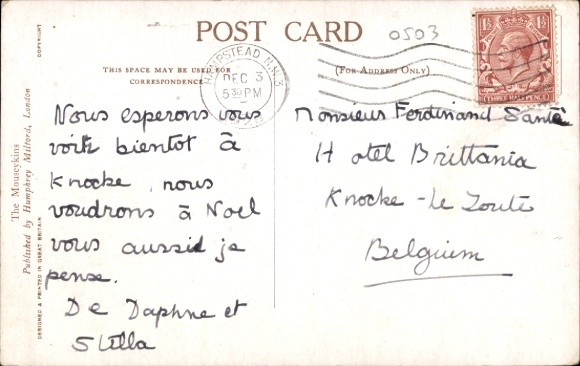 POST CARD
0503
1½ 1½
THREE HALFPENCE
HAMPSTEAD N.W.3
DEC 3
5 30 PM
THIS SPACE MAY BE USED FOR
CORRESPONDENCE
(FOR ADDRESS ONLY)
Nous esperons vous
voir bientot à
Knocke, nous
voudrons à Noel
vous aussi je
pense.
De Daphne et
Stella
Monsieur Ferdinand Santé
Hotel Brittania
Knocke-le Zoute
Belguim
COPYRIGHT
The Mouseykins
Published by Humphrey Milford, London
DESIGNED & PRINTED IN GREAT BRITAIN